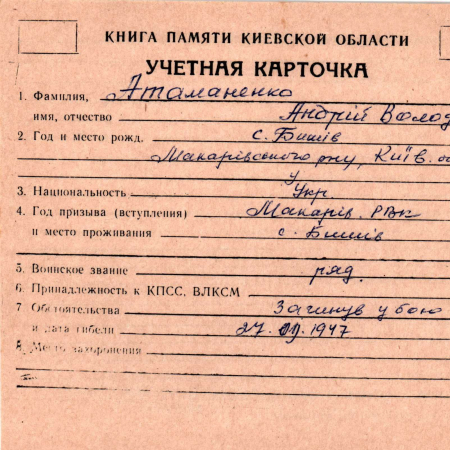 КНИГА ПАМЯТИ КИЕВСКОЙ ОБЛАСТИ
УЧЕТНАЯ КАРТОЧКА
1. Фамилия, Атаманенко
имя, отчество Андрій Волод
2. Год и место рожд. с. Бишів
Макарівського р-ну, Київ. об
3. Национальность Укр.
4. Год призыва (вступления) Макарів. РВК
и место проживания с. Бишів
5. Воинское звание ряд.
6. Принадлежность к КПСС, ВЛКСМ
7 Обстоятельства Загинув у бою
и дата гибели 27. 1947
8. Место захоронения